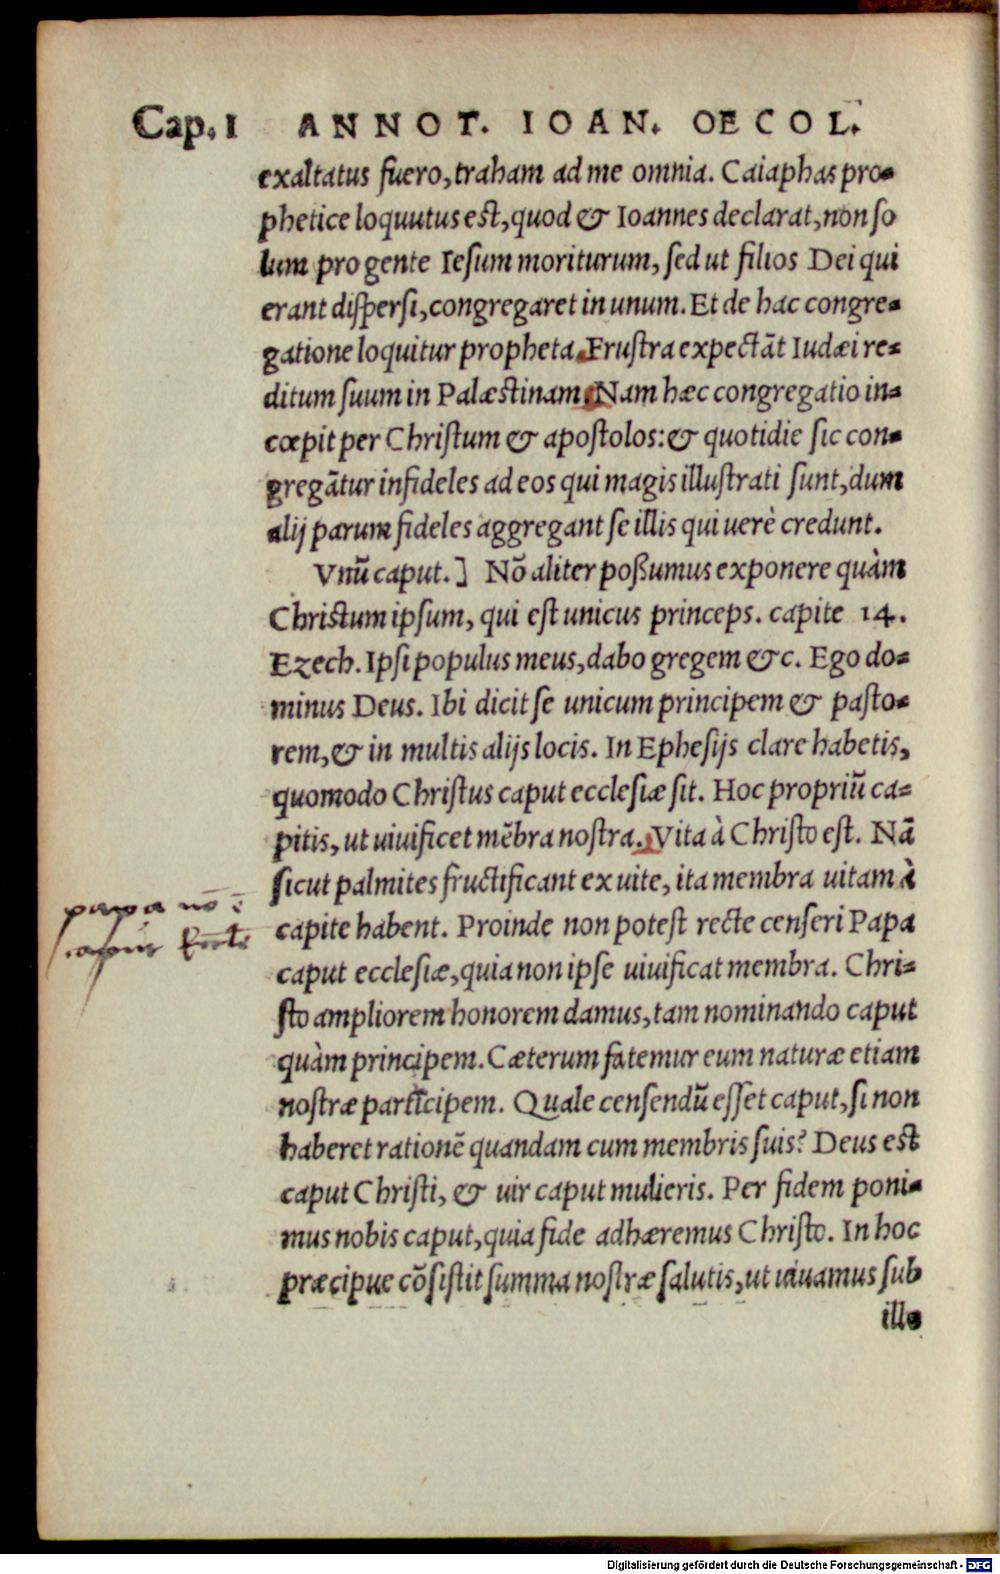 Cap. 1 ANNOT. IOAN. OECOL.
exaltatus fuero, traham ad me omnia. Caiaphas pro-
phetice loquutus est, quod & Ioannes declarat, non so
lum pro gente Iesum moriturum, sed ut filios Dei qui
erant dispersi, congregaret in unum. Et de hac congre-
gatione loquitur propheta. Frustra expectāt Iudæi re-
ditum suum in Palæstinam. Nam hæc congregatio in-
cœpit per Christum & apostolos: & quotidie sic con-
gregātur infideles ad eos qui magis illustrati sunt, dum
alij parum fideles aggregant se illis qui uerè credunt.
Vnū caput.] Nō aliter possumus exponere quàm
Christum ipsum, qui est unicus princeps. capite 14.
Ezech. Ipsi populus meus, dabo gregem &c. Ego do-
minus Deus. Ibi dicit se unicum principem & pasto-
rem, & in multis alijs locis. In Ephesijs clare habetis,
quomodo Christus caput ecclesiæ sit. Hoc propriū ca-
pitis, ut uiuificet mēbra nostra. Vita à Christo est. Nā
sicut palmites fructificant ex uite, ita membra uitam à
papa nō ē
capite habent. Proinde non potest recte censeri Papa
caput Eccle
caput ecclesiæ, quia non ipse uiuificat membra. Chri-
sto ampliorem honorem damus, tam nominando caput
quàm principem. Cæterum fatemur eum naturæ etiam
nostræ participem. Quale censendū esset caput, si non
haberet rationē quandam cum membris suis? Deus est
caput Christi, & uir caput mulieris. Per fidem poni-
mus nobis caput, quia fide adhæremus Christo. In hoc
præcipue cōsistit summa nostræ salutis, ut uiuamus sub
illo
Digitalisierung gefördert durch die Deutsche Forschungsgemeinschaft - DFG